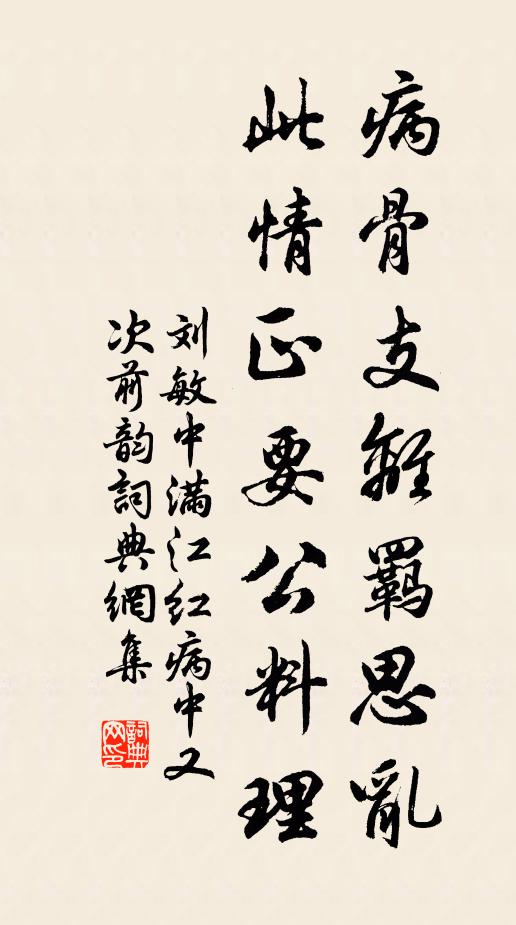 病骨支離羁思亂
此情正要公料理
刘敏中满江红病中又
次前韵詞典網集
詞典
网印